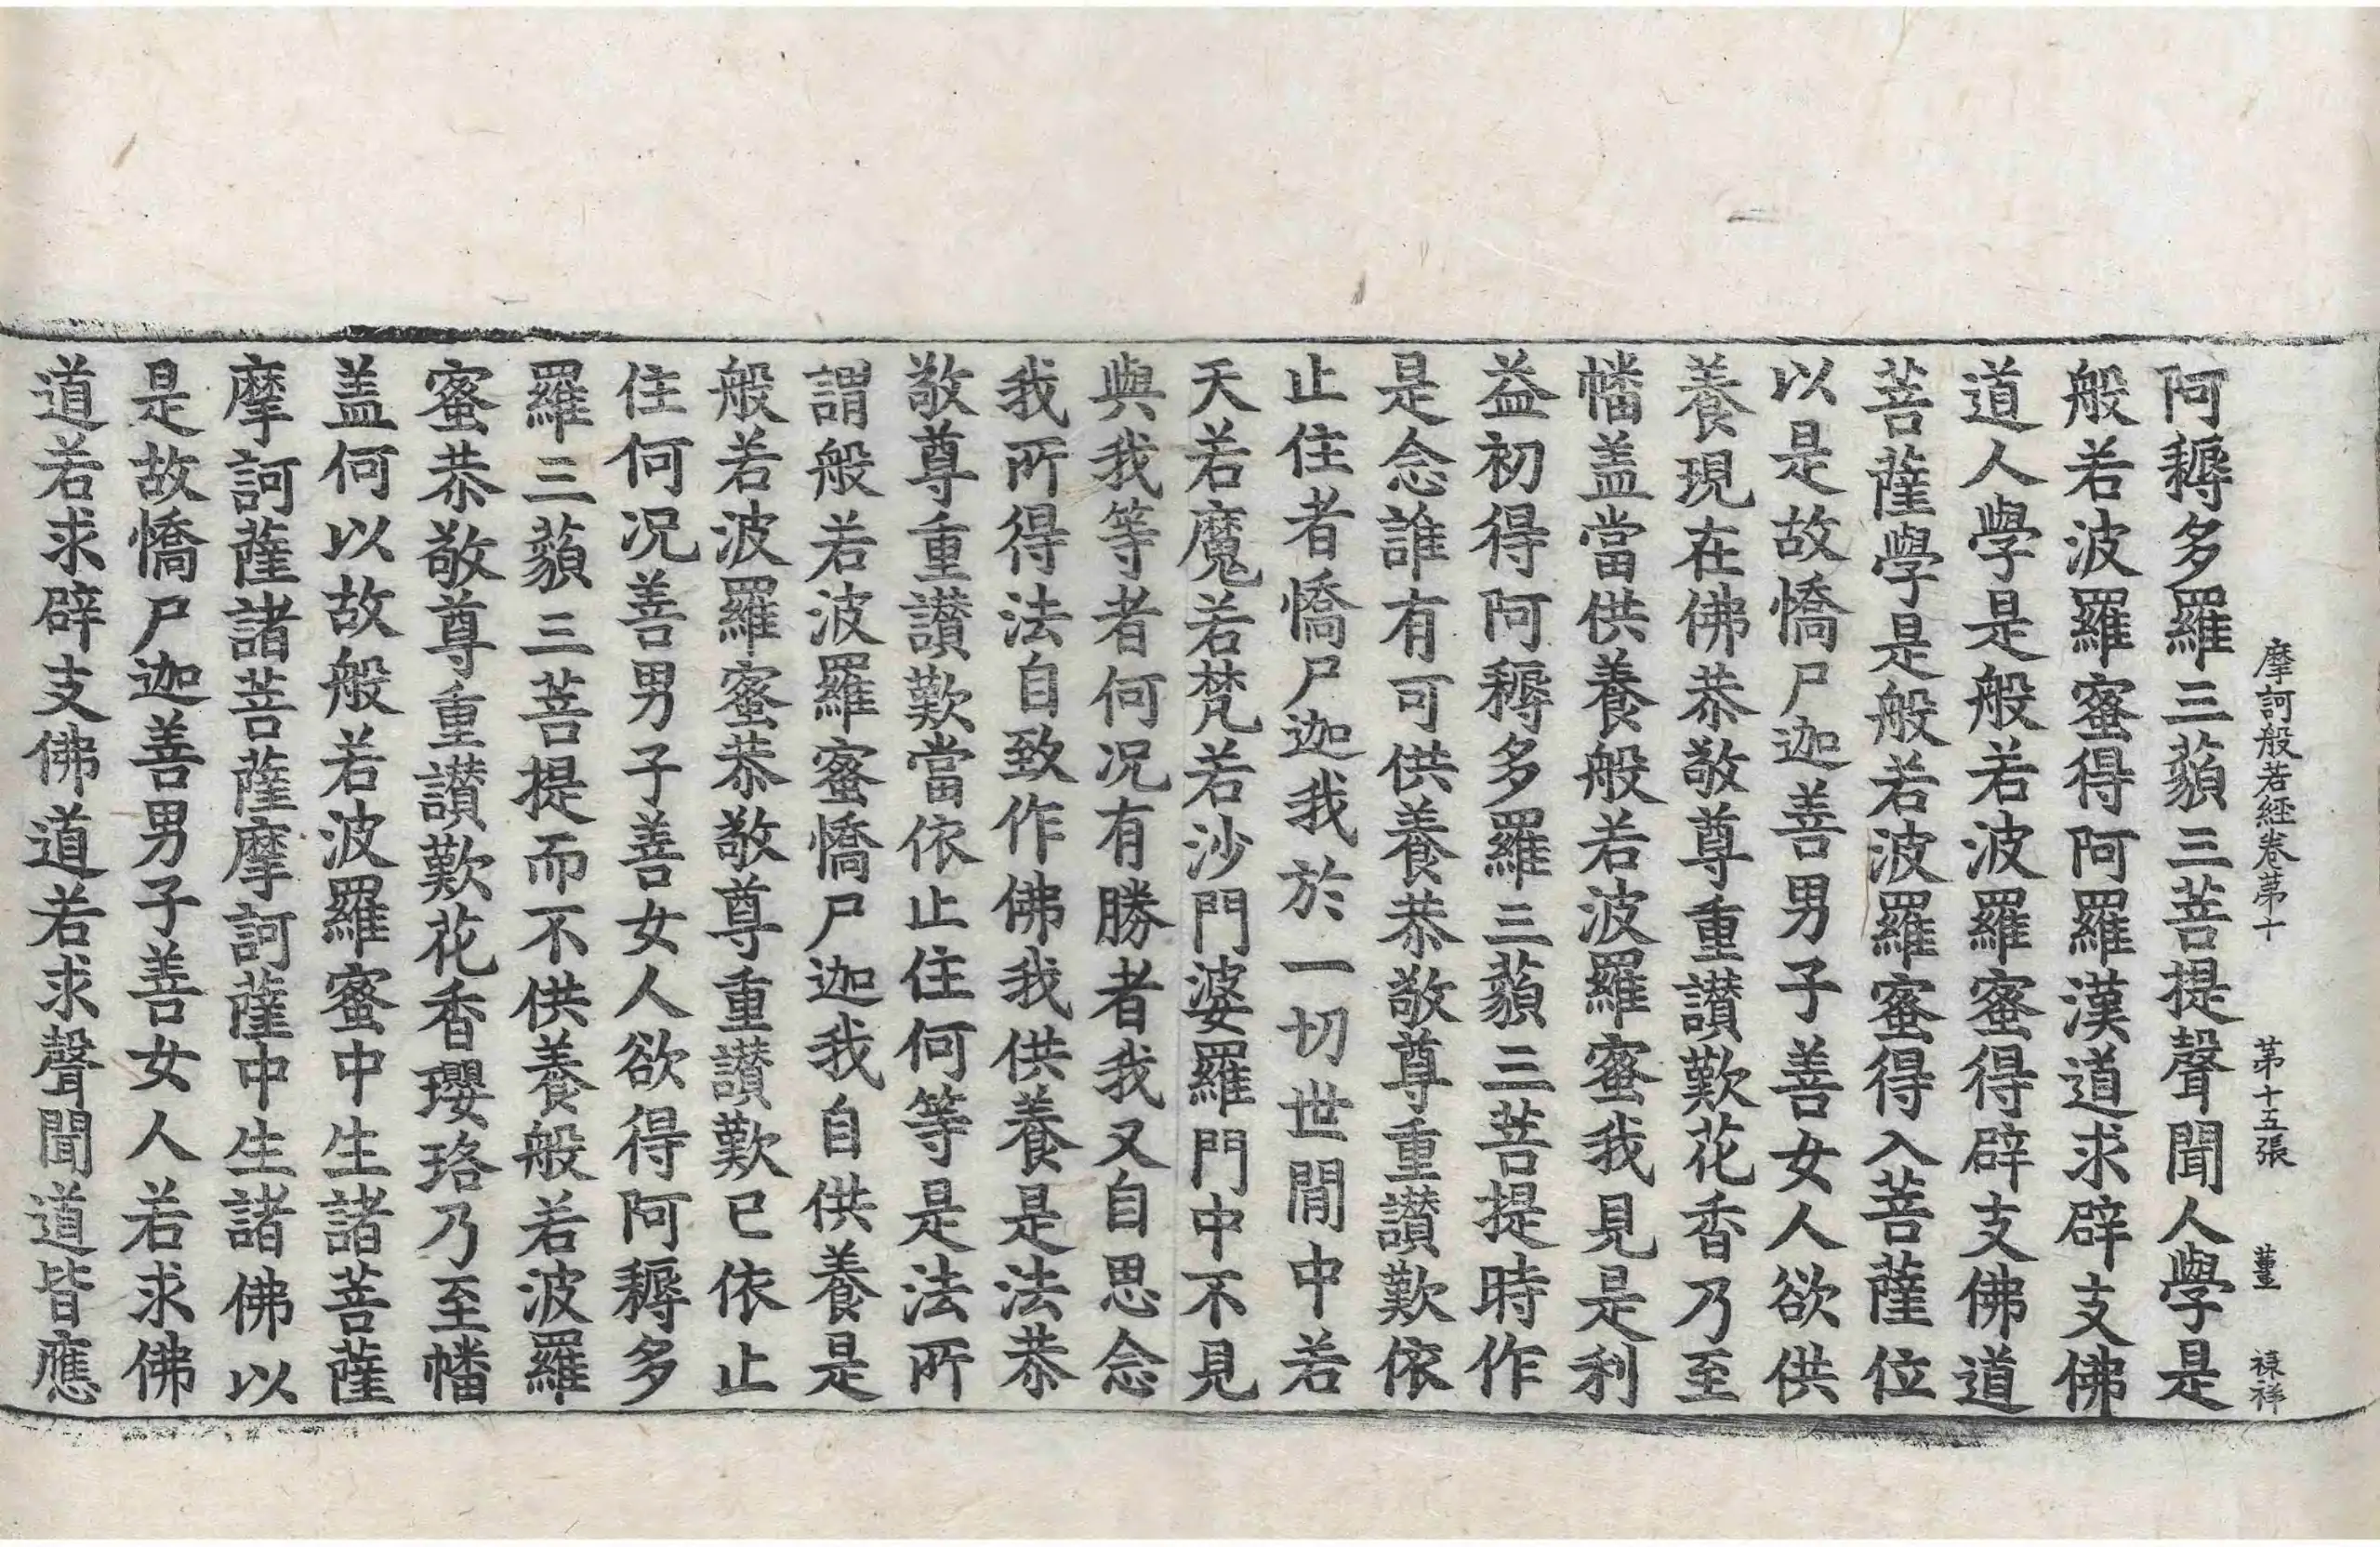 摩訶般若經卷苐十 苐十五張 董 祿祥
阿耨多羅三藐三菩提聲聞人學是
般若波羅蜜得阿羅漢道求辟支佛
道人學是般若波羅蜜得辟支佛道
菩薩學是般若波羅蜜得入菩薩位
以是故憍尸迦善男子善女人欲供
養現在佛恭敬尊重讃歎花香乃至
幡盖當供養般若波羅蜜我見是利
益初得阿耨多羅三藐三菩提時作
是念誰有可供養恭敬尊重讃歎依
止住者憍尸迦我於一切世閒中若
天若魔若梵若沙門婆羅門中不見
與我等者何况有勝者我又自思念
我所得法自致作佛我供養是法恭
敬尊重讃歎當依止住何等是法所
謂般若波羅蜜憍尸迦我自供養是
般若波羅蜜恭敬尊重讃歎已依止
住何况善男子善女人欲得阿耨多
羅三藐三菩提而不供養般若波羅
蜜恭敬尊重讃歎花香瓔珞乃至幡
盖何以故般若波羅蜜中生諸菩薩
摩訶薩諸菩薩摩訶薩中生諸佛以
是故憍尸迦善男子善女人若求佛
道若求辟支佛道若求聲聞道皆應